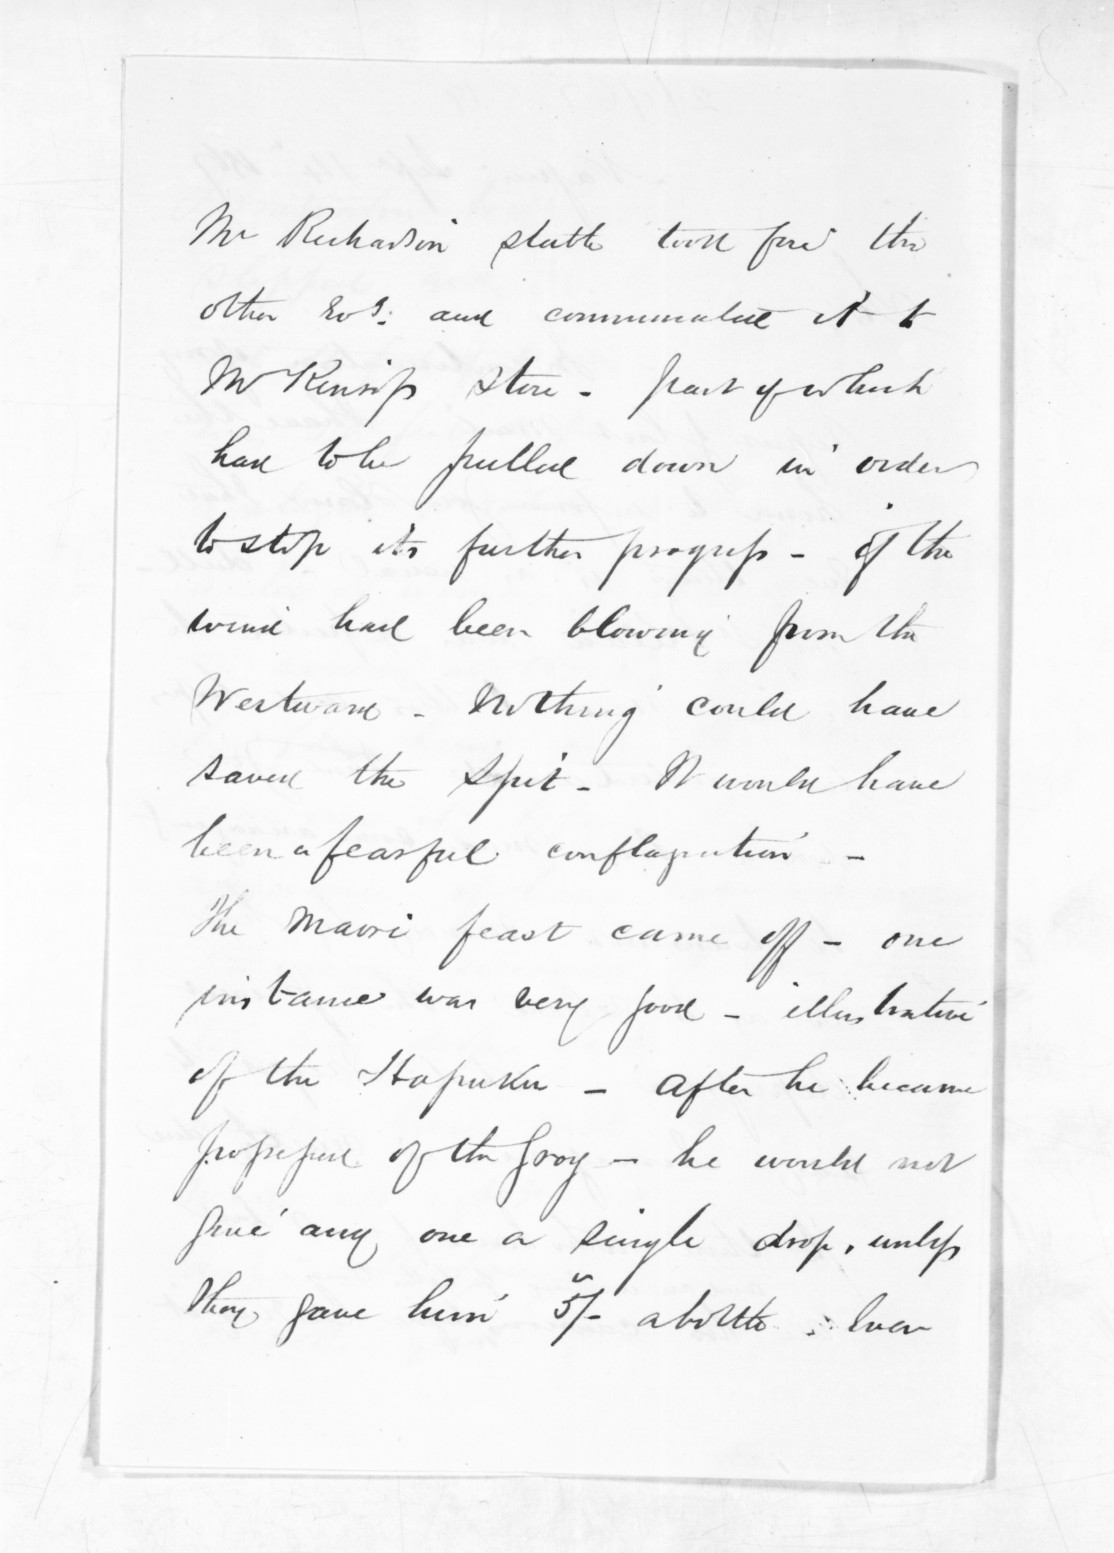 Mr Richardson's stable took fire the
other Evg. and communicated it to
McKensies Store - part of which
had to be pulled down in order
to stop its further progress - if the
wind had been blowing from the
Westward - Nothing could have
saved the Spit - It would have
been a fearful conflagration -
The Maori feast came off - one
instance was very good - illustrative
of the Hapuku - after he became
possessed of the Grog - he would not
give any one a single drop, unless
they gave him 5/- a bottle. Even